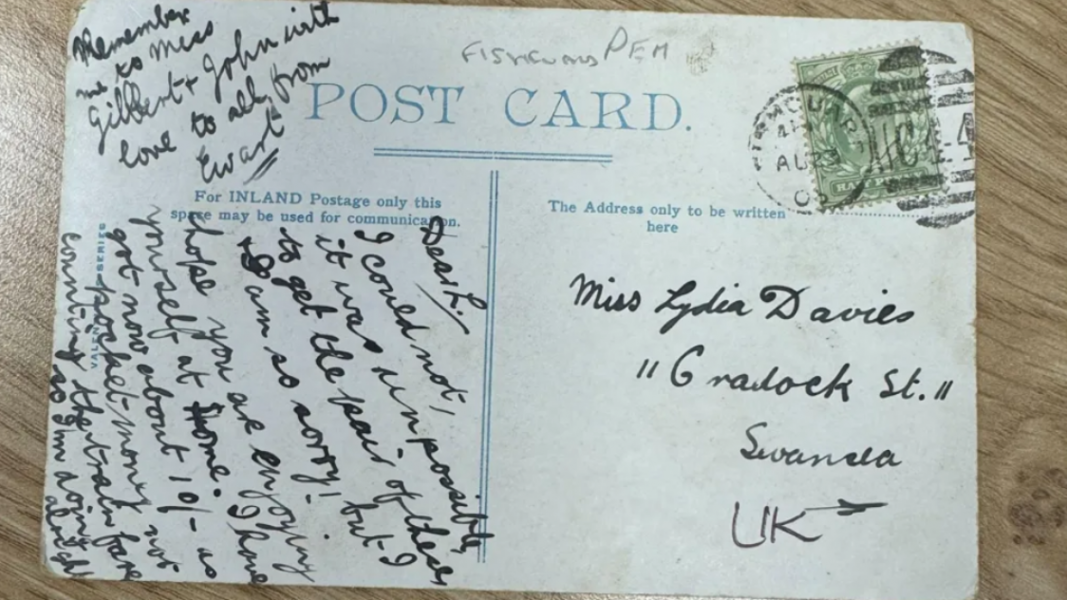 Remember
me to Miss
Gilbert & John with
love to all, from
Ewart
FISHGUARD PEM
POST CARD.
For INLAND Postage only this
space may be used for communication.
The Address only to be written
here
Dear L.
I could not,
it was unpossible,
to get the pair of these,
& I am so sorry! but I
hope you are enjoying
yourself at Home. I have
got now about 10/- as
pocket-money not
counting the train fare
so I'm doing
alright
Miss Lydia Davies
"Cradock St."
Swansea
UK
VALENTINE'S SERIES
AU 23
HALF PENNY